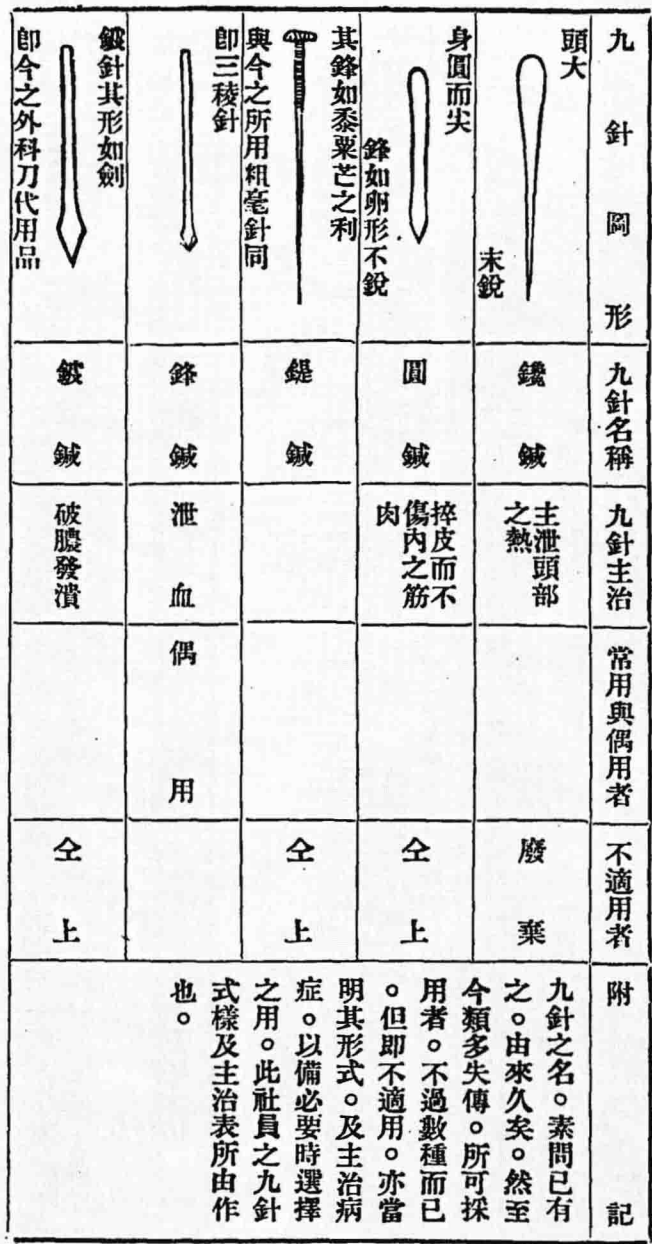 九針圖形
九針名稱
九針主治
常用與偶用者
不適用者
附記
頭大
末銳
鑱鍼
主泄頭部
之熱
廢棄
身圓而尖
鋒如卵形不銳
圓鍼
揥皮而不
傷內之筋
肉
仝上
其鋒如黍粟芒之利
與今之所用粗毫針同
鍉鍼
仝上
即三稜針
鋒鍼
泄血
偶用
鈹針其形如劍
即今之外科刀代用品
鈹鍼
破膿發潰
仝上
九針之名。素問已有
之。由來久矣。然至
今類多失傳。所可採
用者。不過數種而已
。但即不適用。亦當
明其形式。及主治病
症。以備必要時選擇
之用。此社員之九針
式樣及主治表所由作
也。